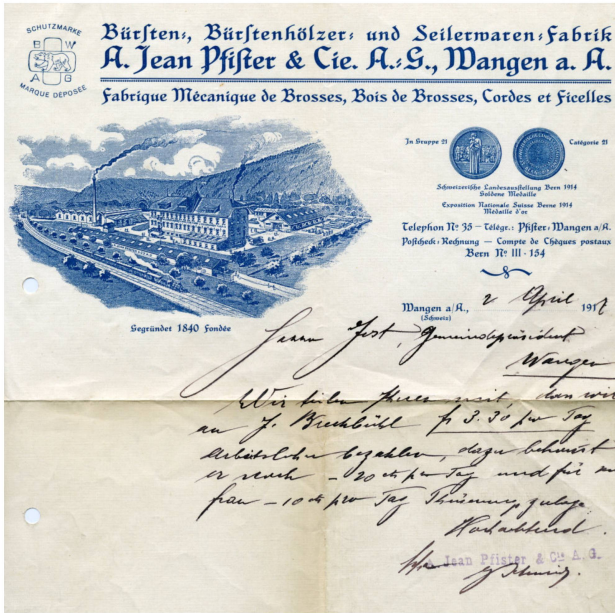 SCHUTZMARKE
B W
A G
MARQUE DÉPOSÉE
Bürsten=, Bürstenhölzer= und Seilerwaren=Fabrik
A. Jean Pfister & Cie. A.=G., Wangen a. A.
Fabrique Mécanique de Brosses, Bois de Brosses, Cordes et Ficelles
In Gruppe 21
Catégorie 21
Schweizerische Landesausstellung Bern 1914
Goldene Medaille
Exposition Nationale Suisse Berne 1914
Médaille d'or
Telephon Nº 35 — Télégr.: Pfister=Wangen a/A.
Postcheck=Rechnung — Compte de Chèques postaux
Bern Nº III - 154
Gegründet 1840 Fondée
Wangen a/A., 2 April 191
(Schweiz)
Herrn Jost, Gemeindepräsident
Wangen
Wir teilen Ihnen mit, dass wir
an J. Brechbühl fr 3.30 pro Tag
Arbeitslohn bezahlen, dazu bekommt
er noch - 20 cts per Tag und für
frau - 10 cts pro Tag Theuerungszulage
Hochachtend.
A. Jean Pfister & Cie A. G.